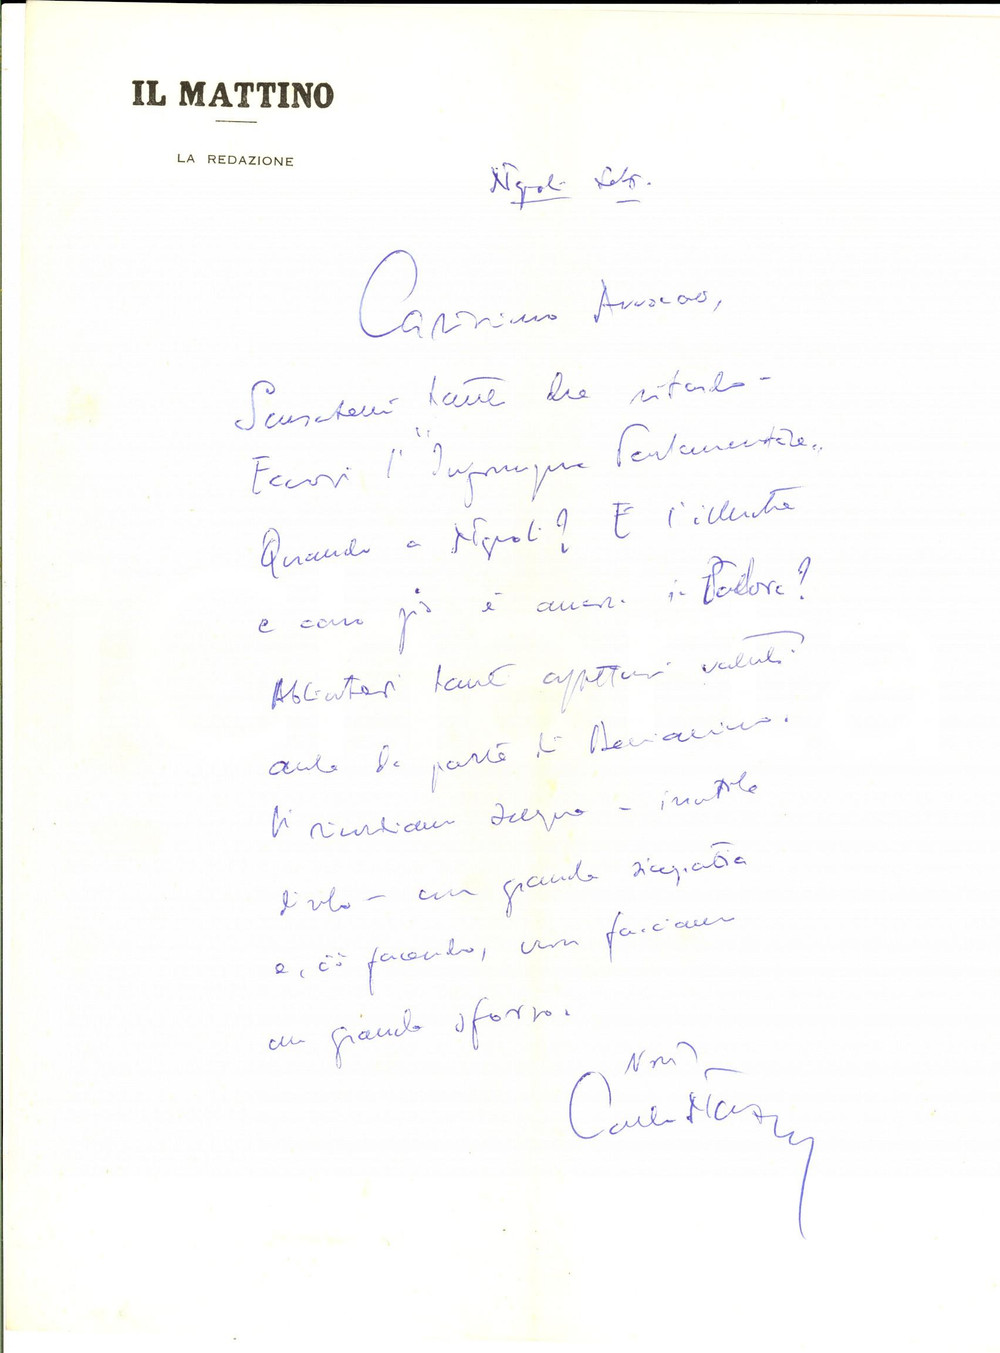 IL MATTINO
LA REDAZIONE
Napoli
Carissimo Avvocato,
Scusatemi tanto del ritardo -
Eccovi l'"Ingorgo Parlamentare".
Quando a Napoli? E l'illustre
e caro già è ancora in Padova?
Abbiatevi tanti affettuosi saluti
anche da parte di
Vi ricordiamo sempre - inutile
dirlo - con grande simpatia
e, ciò facendo, non facciamo
un grande sforzo.
Vostro
Carlo